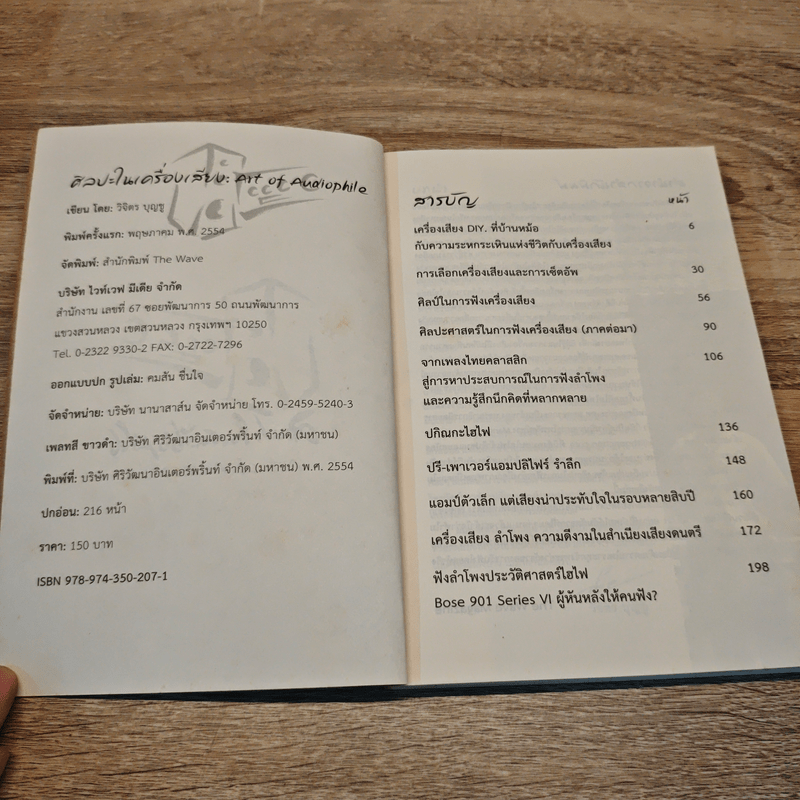 ศิลปะในเครื่องเสียง: Art of Audiophile
เขียน โดย: วิจิตร บุญชู
พิมพ์ครั้งแรก: พฤษภาคม พ.ศ. 2554
จัดพิมพ์: สำนักพิมพ์ The Wave
บริษัท ไวท์เวฟ มีเดีย จำกัด
สำนักงาน เลขที่ 67 ซอยพัฒนาการ 50 ถนนพัฒนาการ
แขวงสวนหลวง เขตสวนหลวง กรุงเทพฯ 10250
Tel. 0-2322 9330-2 FAX: 0-2722-7296
ออกแบบปก รูปเล่ม: คมสัน ชื่นใจ
จัดจำหน่าย: บริษัท นานาสาส์น จัดจำหน่าย โทร. 0-2459-5240-3
เพลทสี ขาวดำ: บริษัท ศิริวัฒนาอินเตอร์พริ้นท์ จำกัด (มหาชน)
พิมพ์ที่: บริษัท ศิริวัฒนาอินเตอร์พริ้นท์ จำกัด (มหาชน) พ.ศ. 2554
ปกอ่อน: 216 หน้า
ราคา: 150 บาท
ISBN 978-974-350-207-1
สารบัญ หน้า
เครื่องเสียง DIY. ที่บ้านหม้อ 6
กับความระหกระเหินแห่งชีวิตกับเครื่องเสียง
การเลือกเครื่องเสียงและการเซ็ตอัพ 30
ศิลป์ในการฟังเครื่องเสียง 56
ศิลปะศาสตร์ในการฟังเครื่องเสียง (ภาคต่อมา) 90
จากเพลงไทยคลาสสิก 106
สู่การหาประสบการณ์ในการฟังลำโพง
และความรู้สึกนึกคิดที่หลากหลาย
ปกิณกะไฮไฟ 136
ปรี-เพาเวอร์แอมปลิไฟร์ รำลึก 148
แอมป์ตัวเล็ก แต่เสียงน่าประทับใจในรอบหลายสิบปี 160
เครื่องเสียง ลำโพง ความดีงามในสำเนียงเสียงดนตรี 172
ฟังลำโพงประวัติศาสตร์ไฮไฟ 198
Bose 901 Series VI ผู้หันหลังให้คนฟัง?